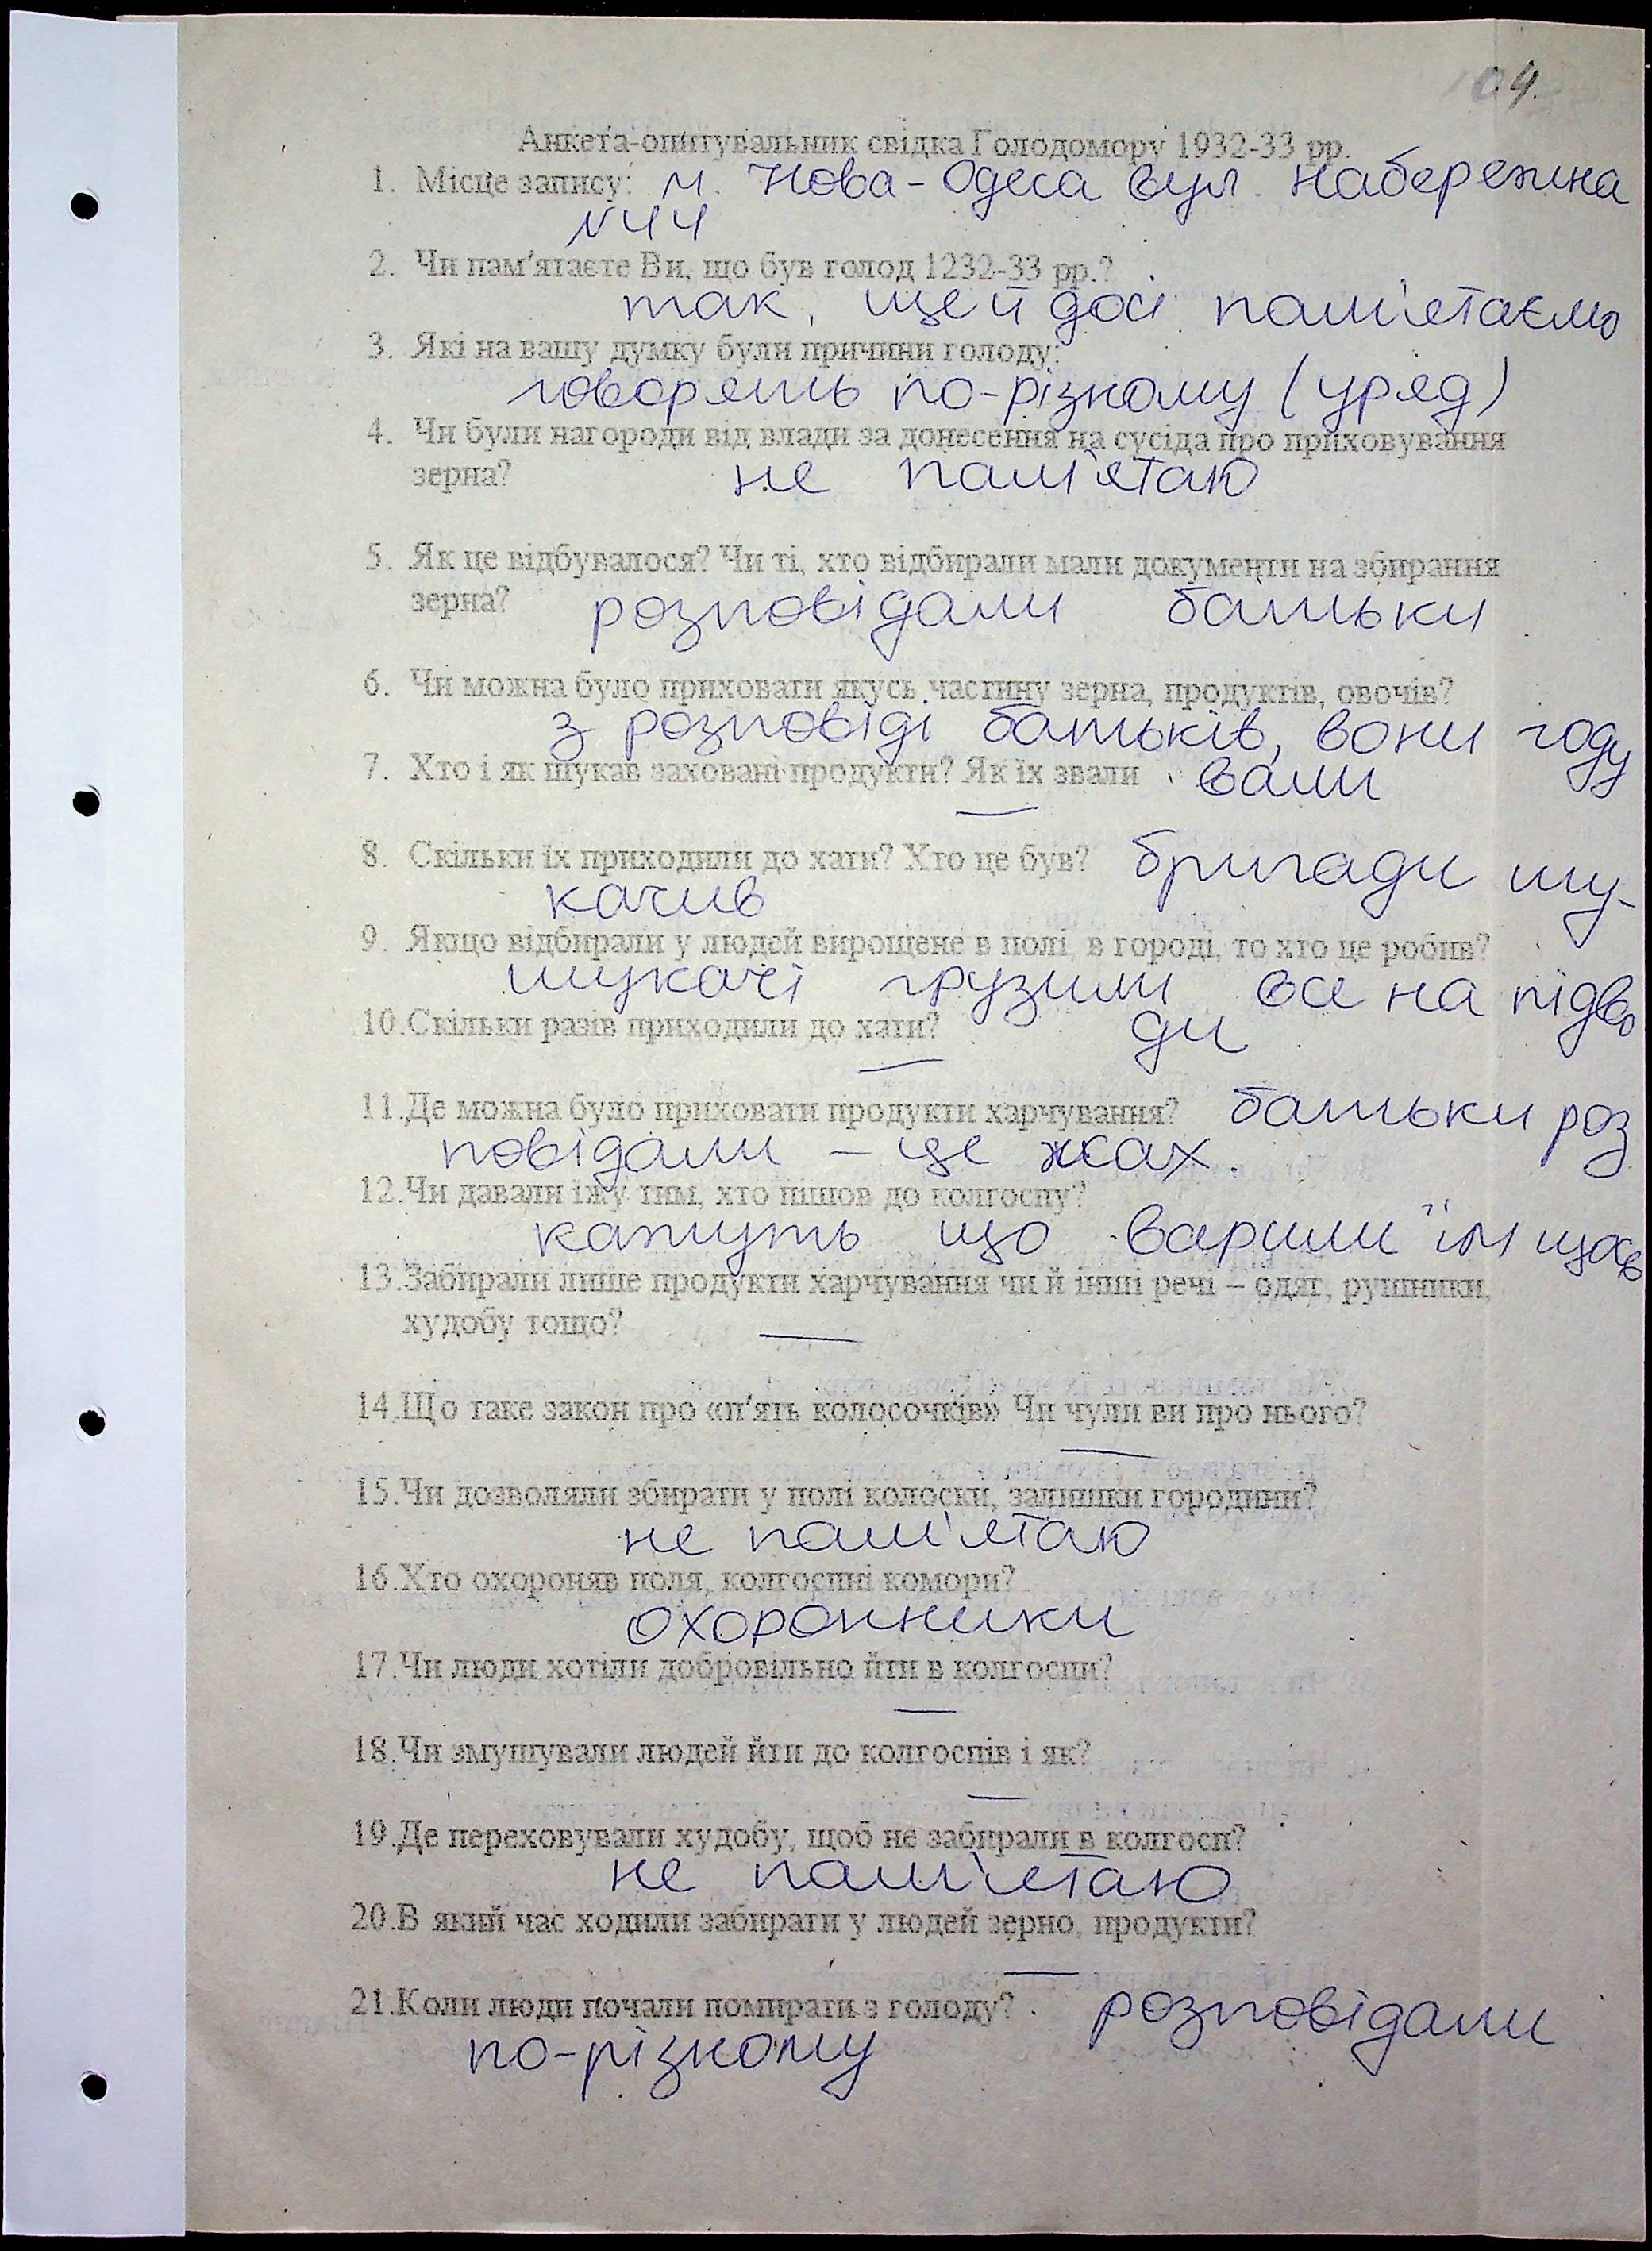 04.
Анкета-опитувальник свідка Голодомору 1932-33 рр.
1. Місце запису: м. Нова-Одеса вул. Набережна
№44
2. Чи пам'ятаєте Ви, що був голод 1232-33 рр.?
так, ще й досі пам'ятаємо
3. Які на вашу думку були причини голоду:
говорять по-різному (уряд)
4. Чи були нагороди від влади за донесення на сусіда про приховування
зерна? не пам'ятаю
5. Як це відбувалося? Чи ті, хто відбирали мали документи на збирання
зерна? розповідали батьки
6. Чи можна було приховати якусь частину зерна, продуктів, овочів?
з розповіді батьків, вони году
7. Хто і як шукав заховані продукти? Як їх звали вали
—
8. Скільки їх приходили до хати? Хто це був? бригади шу-
качив
9. Якщо відбирали у людей вирощене в полі, в городі, то хто це робив?
шукачі грузили все на підво
10.Скільки разів приходили до хати? ди
—
11.Де можна було приховати продукти харчування? батьки роз
повідали – це жах.
12.Чи давали їжу тим, хто пішов до колгоспу?
кажуть що варили їм щось
13.Забирали лише продукти харчування чи й інші речі – одяг, рушники,
худобу тощо? —
14.Що таке закон про «п'ять колосочків» Чи чули ви про нього?
—
15.Чи дозволяли збирати у полі колоски, залишки городини?
не пам'ятаю
16.Хто охороняв поля, колгоспні комори?
охоронники
17.Чи люди хотіли добровільно йти в колгоспи?
—
18.Чи змушували людей йти до колгоспів і як?
—
19.Де переховували худобу, щоб не забирали в колгосп?
не пам'ятаю
20.В який час ходили забирати у людей зерно, продукти?
—
21.Коли люди почали помирати з голоду? розповідали
по-різному